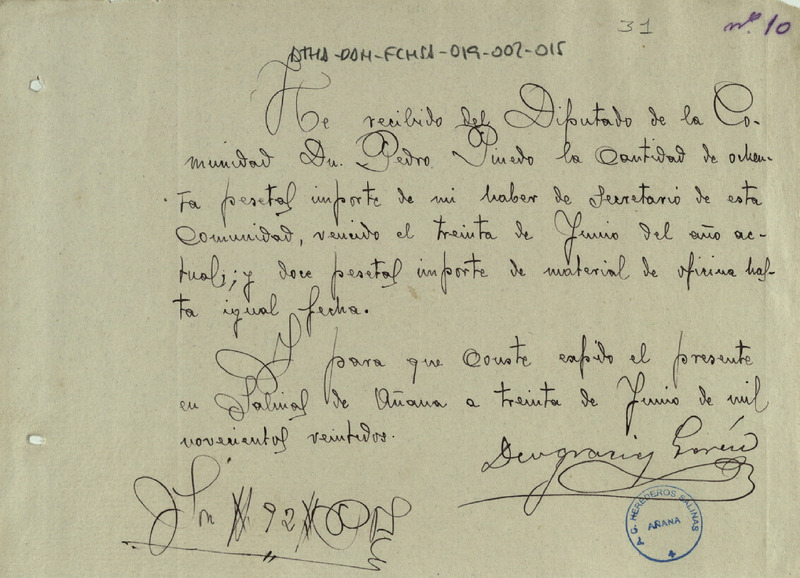 31
nº 10
ATHA-DAH-FCHSA-019-002-015
He recibido del Diputado de la Co-
munidad Dn. Pedro Pinedo la Cantidad de ochen-
ta pesetas importe de mi haber de Secretario de esta
Comunidad, vencido el treinta de Junio del año ac-
tual; y doce pesetas importe de material de oficina has-
ta igual fecha.
Y para que Conste espido el presente
en Salinas de Añana a treinta de Junio de mil
novecientos veintidos.
Deogracias
Son # 92 #
A. G. HEREDEROS SALINAS
AÑANA